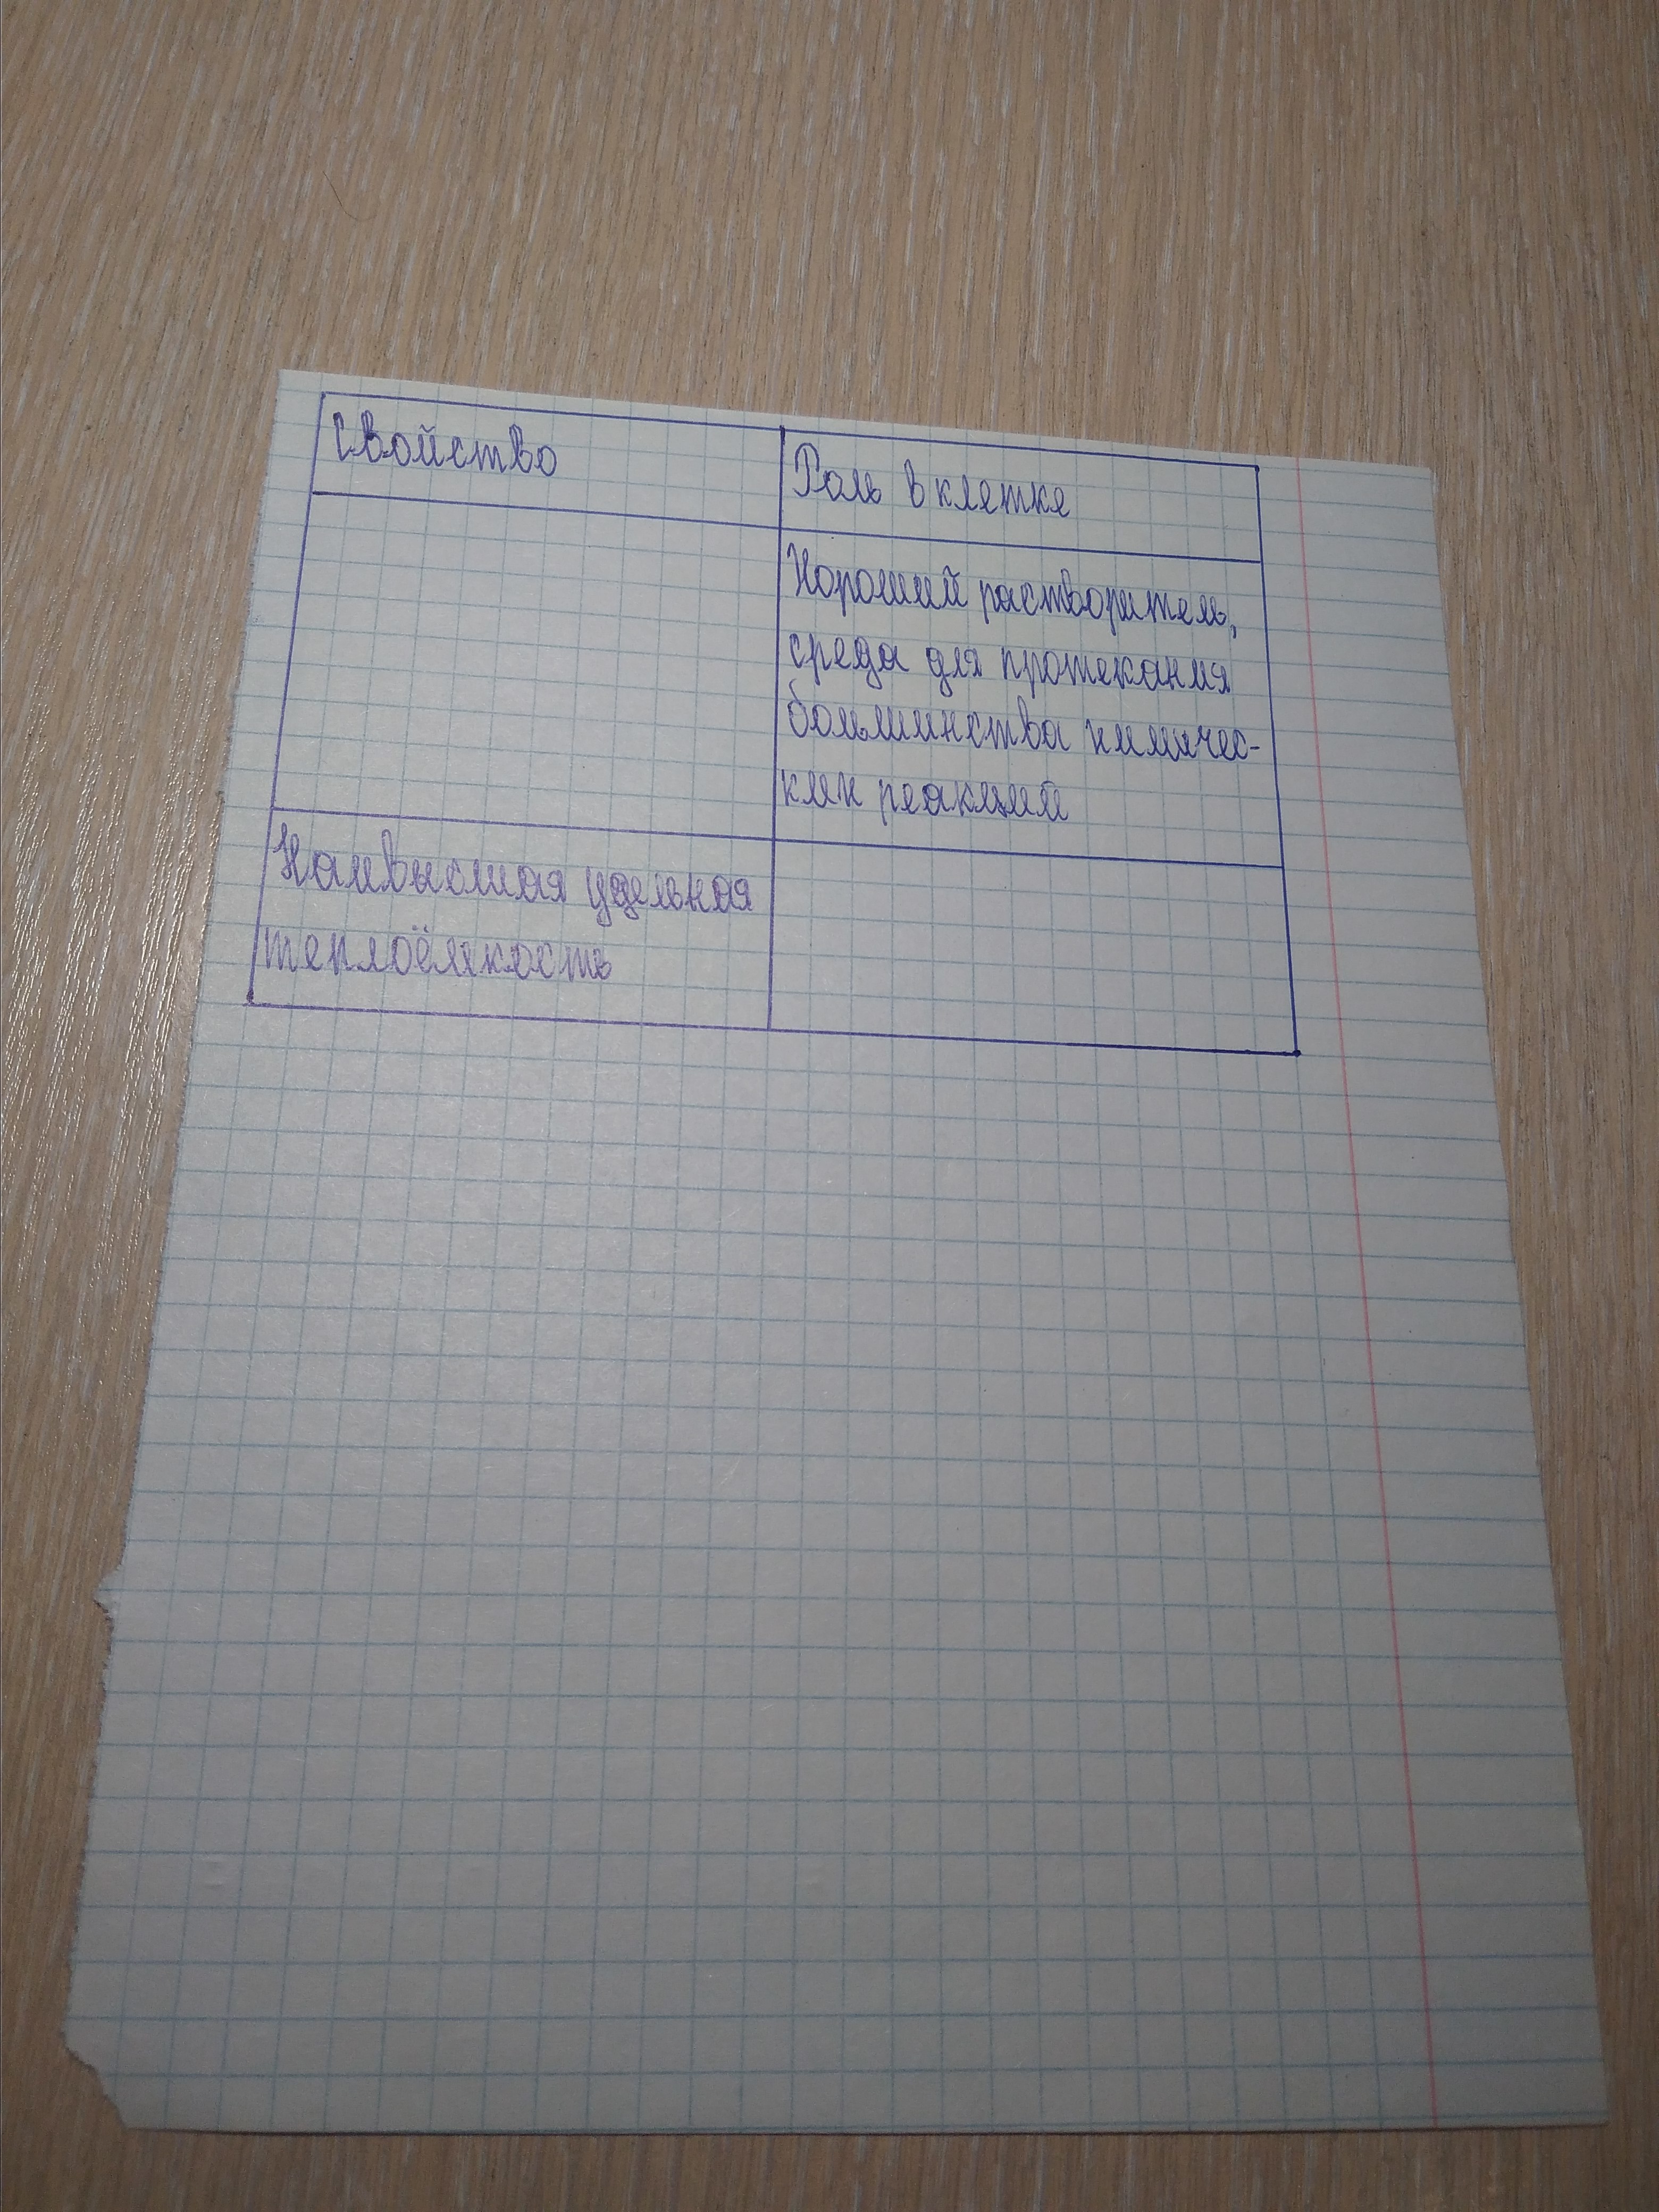 Свойство
Роль в клетке
Хороший растворитель,
среда для протекания
большинства химичес-
ких реакций
Наивысшая удельная
теплоёмкость